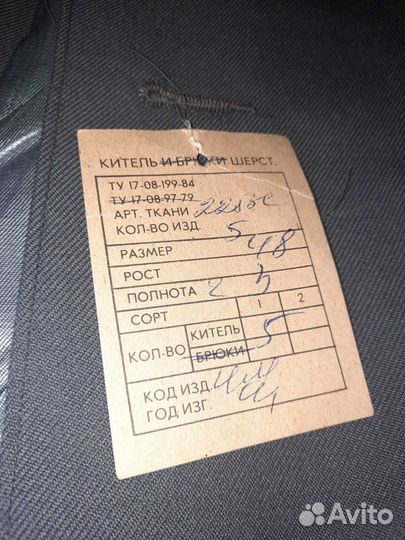 КИТЕЛЬ И БРЮКИ ШЕРСТ.
ТУ 17-08-199-84
ТУ 17-08-97-79
АРТ. ТКАНИ
КОЛ-ВО ИЗД. 5
РАЗМЕР 48
РОСТ
ПОЛНОТА 2
СОРТ 1 2
КИТЕЛЬ 5
КОЛ-ВО
БРЮКИ
КОД ИЗД.
ГОД ИЗГ.
Avito